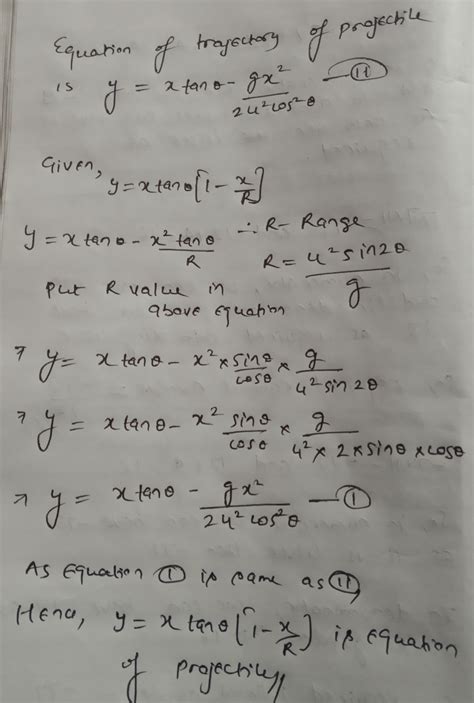 Equation of trajectory of projectile
is y = x tanθ - gx² / 2u²cos²θ —(II)
Given, y = x tanθ [1 - x/R]
y = x tanθ - x² tanθ / R ∴ R - Range
R = u² sin2θ / g
put R value in
above equation
⇒ y = x tanθ - x² × sinθ/cosθ × g / u² sin 2θ
⇒ y = x tanθ - x² sinθ/cosθ × g / u² × 2 × sinθ × cosθ
⇒ y = x tanθ - gx² / 2u² cos²θ —(I)
As Equation (I) is same as (II)
Henc, y = x tanθ [1 - x/R] is equation
of projectile//